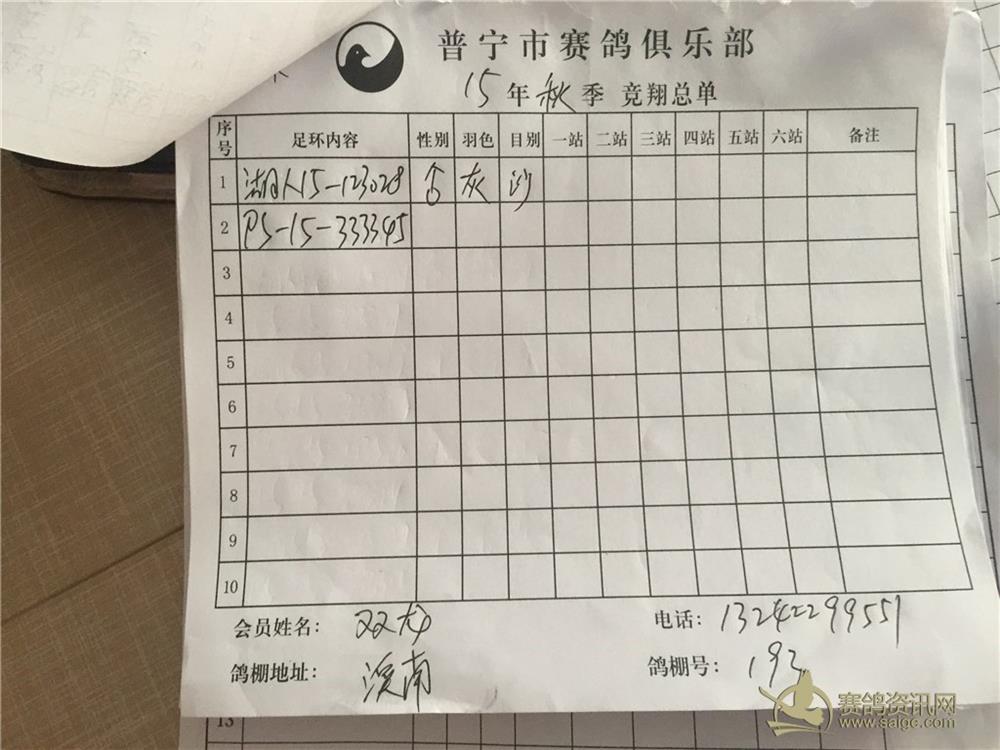 普宁市赛鸽俱乐部
15年秋季 竞翔总单
序号 足环内容 性别 羽色 目别 一站 二站 三站 四站 五站 六站 备注
1 湖人15-123028 灰 沙
2 PS-15-333345
3
4
5
6
7
8
9
10
会员姓名: 双龙 电话: 13242299551
鸽棚地址: 溪南 鸽棚号: 193
13
赛鸽资讯网
www.saigc.com